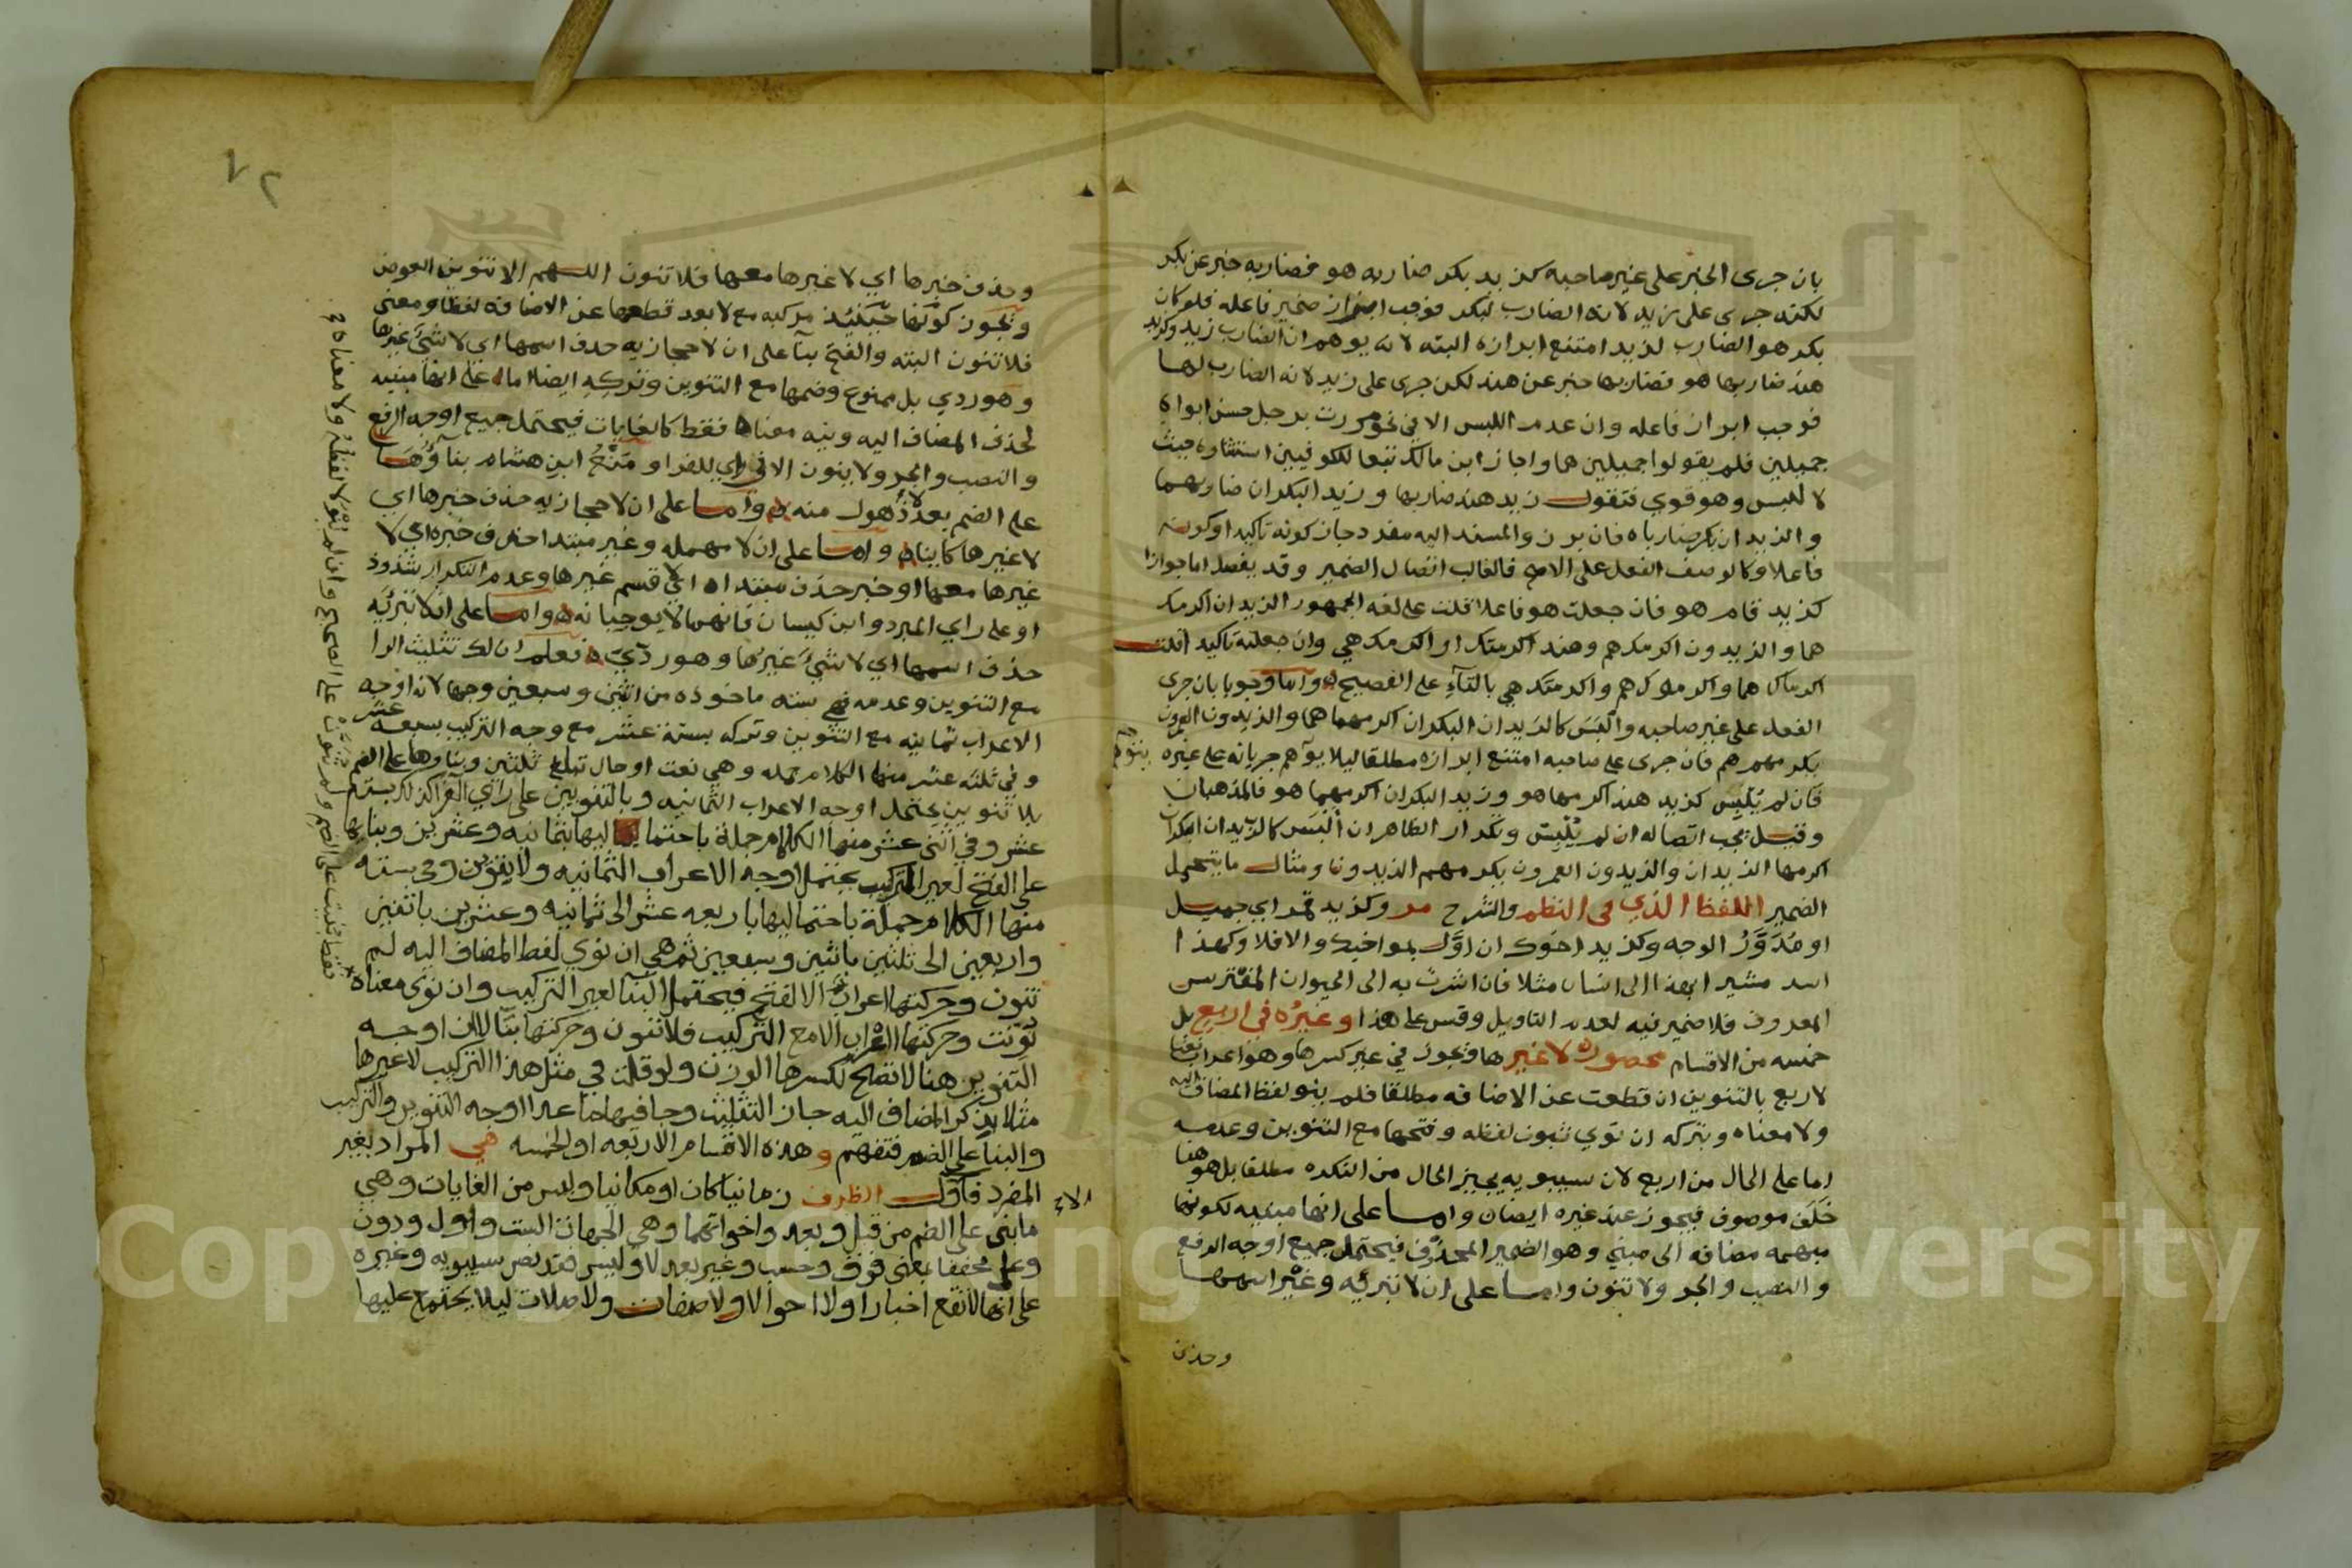 بان جرى الخبر على غير صاحبه كزيد بكر ضاربه هو فضاربه خبر عن بكر
لكنه جرى على زيد لانه الضارب لبكر فوجب ابراز ضمير فاعله فلو كان
بكر هو الضارب لزيد امتنع ابرازه البته لانه يوهم ان الضارب زيد وكزيد
هند ضاربها هو فضاربها خبر عن هند لكن جرى على زيد لانه الضارب لها
فوجب ابراز فاعله وان عدم اللبس الا في نحو مررت برجل حسن ابواه
جميلين فلم يقولوا جميلين هما واجاز ابن مالك تبعا للكوفيين استتاره حيث
لا لبس وهو قوي فتقول زيد هند ضاربها وزيد البكران ضاربهما
والزيدان بكر ضارباه فان برز والمسند اليه مفرد جاز كونه تاكيدا وكونه
فاعلا وكالوصف الفعل على الاصح فالغالب اتصال الضمير وقد يفصل اما جوازا
كزيد قام هو فان جعلت هو فاعلا قلت على لغه الجمهور الزيدان اكرمك
هما والزيدون اكرمك هم وهند اكرمتك او اكرمك هي وان جعلته تاكيدا قلت
اكرماك هما واكرموك هم واكرمتك هي بالتآء على الفصيح واما وجوبا بان جرى
الفعل على غير صاحبه والبس كالزيدان البكران اكرمهما هما والزيدون العمرون
يكرمهم هم فان جرى على صاحبه امتنع ابرازه مطلقا ليلا يوهم جريانه على غيره
فان لم يلبس كزيد هند اكرمها هو وزيد البكران اكرمهما هو فالمذهبان
وقيل يجب اتصاله ان لم يلبس وتكرار الظاهر ان البس كالزيدان البكران
اكرمها الزيدان والزيدون العمرون يكرمهم الزيدون ومثال ما يتحمل
الضمير اللفظ الذي في النظم والشرح مر وكزيد قمر اي جميل
او مدور الوجه وكزيد اخوك ان اول بمواخيك والا فلا وكهذا
اسد مشيرا بهذا الى انسان مثلا فان اشرت به الى الحيوان المفترس
المعروف فلا ضمير فيه لعدم التاويل وقس على هذا وغيره في اربع بل
خمسه من الاقسام محصوره لا غير ها ويجوز في غير كسرها وهو اعراب
لا ربع بالتنوين ان قطعت عن الاضافه مطلقا فلم ينو لفظ المضاف اليه
ولا معناه وبتركه ان نوي ثبوت لفظه وفتحها مع التنوين وعدمه
اما على الحال من اربع لان سيبويه يجيز الحال من النكره مطلقا بل هو هنا
خلف موصوف فيجوز عند غيره ايضا واما على انها مبنيه لكونها
مبهمه مضافه الى مبني وهو الضمير المحذوف فيحتمل جميع اوجه الرفع
والنصب والجر ولا تنون واما على ان لا تبرئه وغير اسمها
وحذف
٧٢
وحذف خبرها اي لا غيرها معها فلا تنون اللهم الا تنوين العوض
ويجوز كونها حينئذ مركبه مع لا بعد قطعها عن الاضافه لفظا ومعنى
فلا تنون البته والفتح بنآ على ان لا حجازيه حذف اسمها اي لا شيئ غيرها
وهو ردي بل ممنوع وضمها مع التنوين وتركه ايضا اما على انها مبنيه
لحذف المضاف اليه ونيه معناه فقط كالغايات فيحتمل جميع اوجه الرفع
والنصب والجر ولا ينون الا في راي للفرا ومنع ابن هشام بناؤها
على الضم بعد لا ذهول منه واما على ان لا حجازيه حذف خبرها اي
لا غيرها كاينا واما على ان لا مهمله وغير مبتدا حذف خبره اي لا
غيرها معها او خبر حذف مبتداه اي لا قسم غيرها وعدم التكرار شذوذ
او على راي المبرد وابن كيسان فانهما لا يوجبانه واما على ان لا تبرئه
حذف اسمها اي لا شيئ غيرها وهو ردي فعلم ان لك تثليث الرا
مع التنوين وعدمه فهي سته ماخوذه من اثنين وسبعين وجها لان اوجه
الاعراب ثمانيه مع التنوين وتركه بستة عشر مع وجه التركيب سبعه عشر
وفي ثلثه عشر منها الكلام جمله وهي نعت او حال تبلغ ثلثين وبناوها على الضم
بلا تنوين يحتمل اوجه الاعراب الثمانيه وبالتنوين على راي الفرا كذلك بسته
عشر وفي اثنى عشر منها الكلام جملة باحتماليها بثمانيه وعشرين وبناها
على الفتح لغير التركيب يحتمل اوجه الاعراب الثمانيه ولا ينون وفي سته
منها الكلام جملة باحتماليها باربعه عشر الى ثمانيه وعشرين باثنين
واربعين الى ثلثين باثنين وسبعين ثم هي ان نوي لفظ المضاف اليه لم
تنون وحركتها اعراب الا الفتح فيحتمل البنآ لغير التركيب وان نوى معناه
نونت وحركتها اعراب الا مع التركيب فلا تنون وحركتها بنآ الا ان اوجه
التنوين هنا لا تصح لكسرها الوزن ولو قلت في مثل هذا التركيب لا غيرها
مثلا بذكر المضاف اليه جاز التثليث وجا فيها ما عدا اوجه التنوين والتركيب
والبنآ على الضم فتفهم وهذه الاقسام الاربعه او الخمسه هي المراد بغير
المفرد فاول الظرف زمانيا كان او مكانيا وليس من الغايات وهي
ما بنى على الضم من قبل وبعد واخواتهما وهي الجهات الست واول ودون
وعل مخففا بمعنى فوق وحسب وغير بعد لا وليس فقد نص سيبويه وغيره
على انها لا تقع اخبارا ولا احوالا ولا صفات ولا صلات ليلا يجتمع عليها